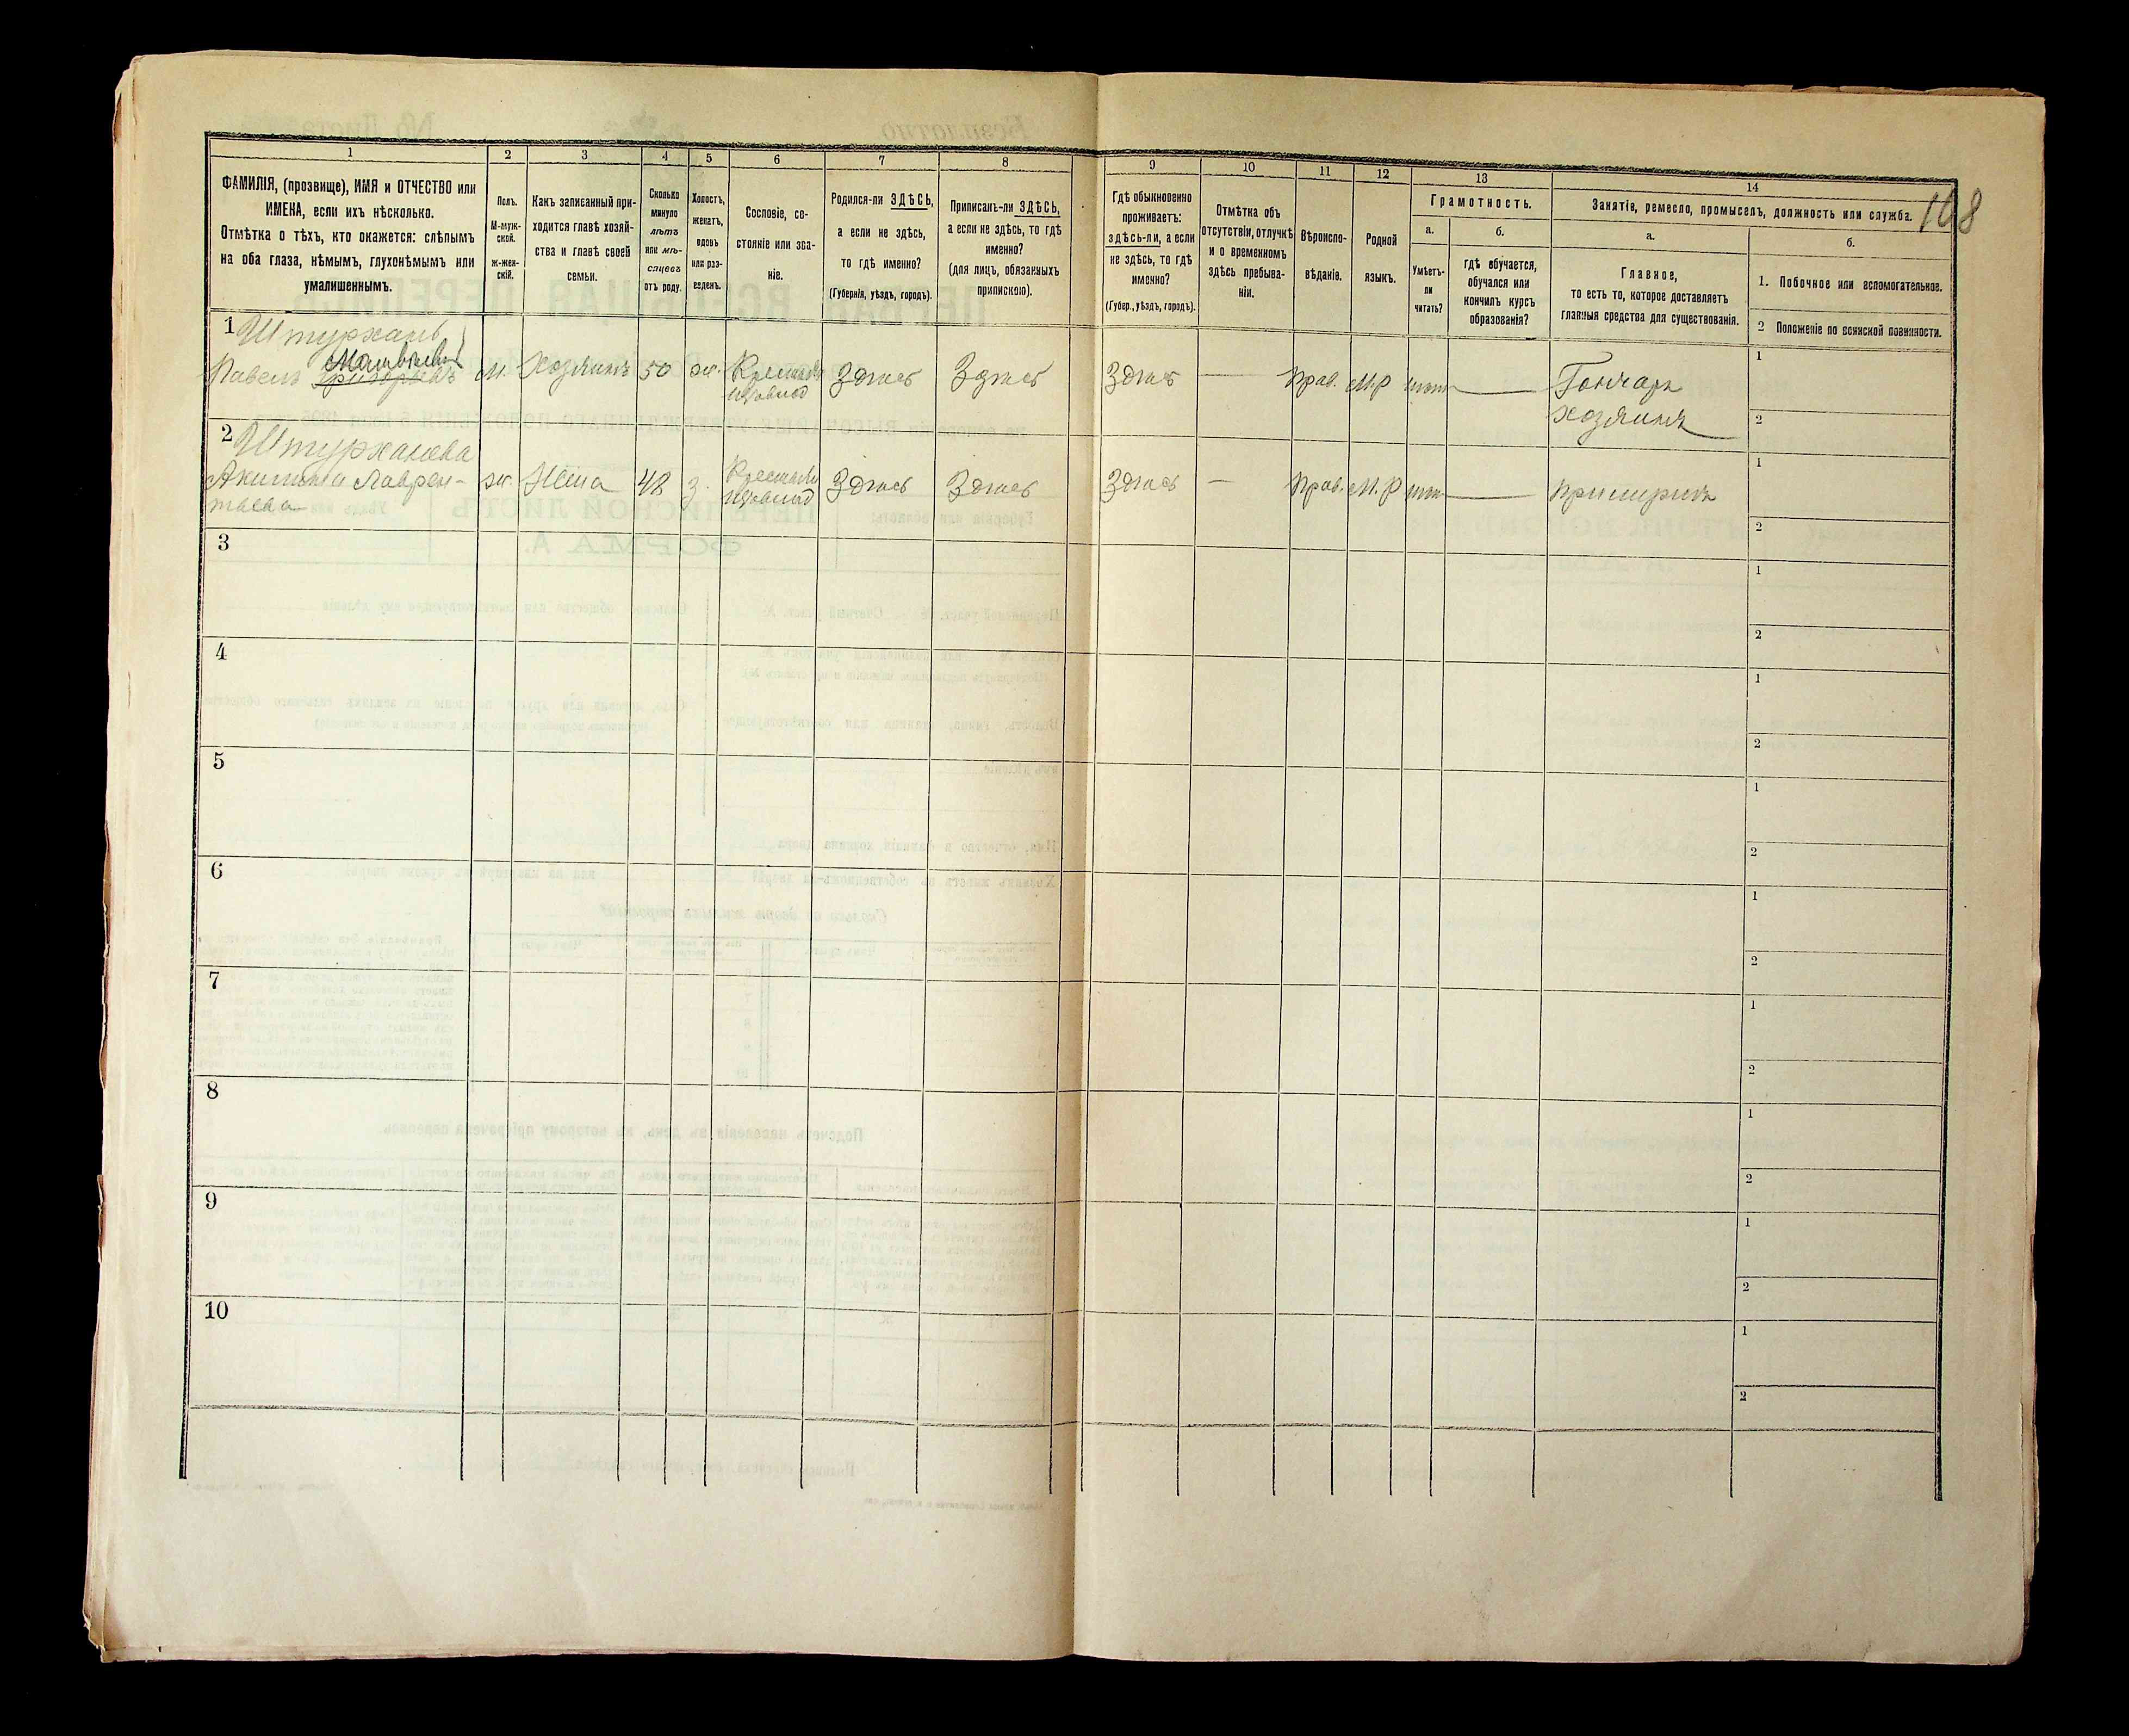 108
1 2 3 4 5 6 7 8 9 10 11 12 13 14
ФАМИЛІЯ, (прозвище), ИМЯ и ОТЧЕСТВО или
ИМЕНА, если ихъ нѣсколько.
Отмѣтка о тѣхъ, кто окажется: слѣпымъ
на оба глаза, нѣмымъ, глухонѣмымъ или
умалишеннымъ.
Полъ.
М-муж-
ской.
ж-жен-
скій.
Какъ записанный при-
ходится главѣ хозяй-
ства и главѣ своей
семьи.
Сколько
минуло
лѣтъ
или мѣ-
сяцевъ
отъ роду.
Холостъ,
женатъ,
вдовъ
или раз-
веденъ.
Сословіе, со-
стояніе или зва-
ніе.
Родился-ли ЗДѢСЬ,
а если не здѣсь,
то гдѣ именно?
(Губернія, уѣздъ, городъ).
Приписанъ-ли ЗДѢСЬ,
а если не здѣсь, то гдѣ
именно?
(для лицъ, обязанныхъ
припискою).
Гдѣ обыкновенно
проживаетъ:
здѣсь-ли, а если
не здѣсь, то гдѣ
именно?
(Губер., уѣздъ, городъ).
Отмѣтка объ
отсутствіи, отлучкѣ
и о временномъ
здѣсь пребыва-
ніи.
Вѣроиспо-
вѣданіе.
Родной
языкъ.
Грамотность.
а.
Умѣетъ-
ли
читать?
б.
гдѣ обучается,
обучался или
кончилъ курсъ
образованія?
Занятія, ремесло, промыселъ, должность или служба.
а.
Главное,
то есть то, которое доставляетъ
главныя средства для существованія.
б.
1. Побочное или вспомогательное.
2 Положеніе по воинской повинности.
1 Штурханъ
Матвѣевъ
Павелъ М. Хозяинъ 50 ж. Здѣсь Здѣсь Здѣсь — Прав. М.Р нѣтъ — Гончаръ
хозяинъ
1
2
2 Штурханова
Акилина Лаврен- ж. Жена 48 з. Здѣсь Здѣсь Здѣсь — Прав. М.Р нѣтъ —
тьева
1
2
3
1
2
4
1
2
5
1
2
6
1
2
7
1
2
8
1
2
9
1
2
10
1
2